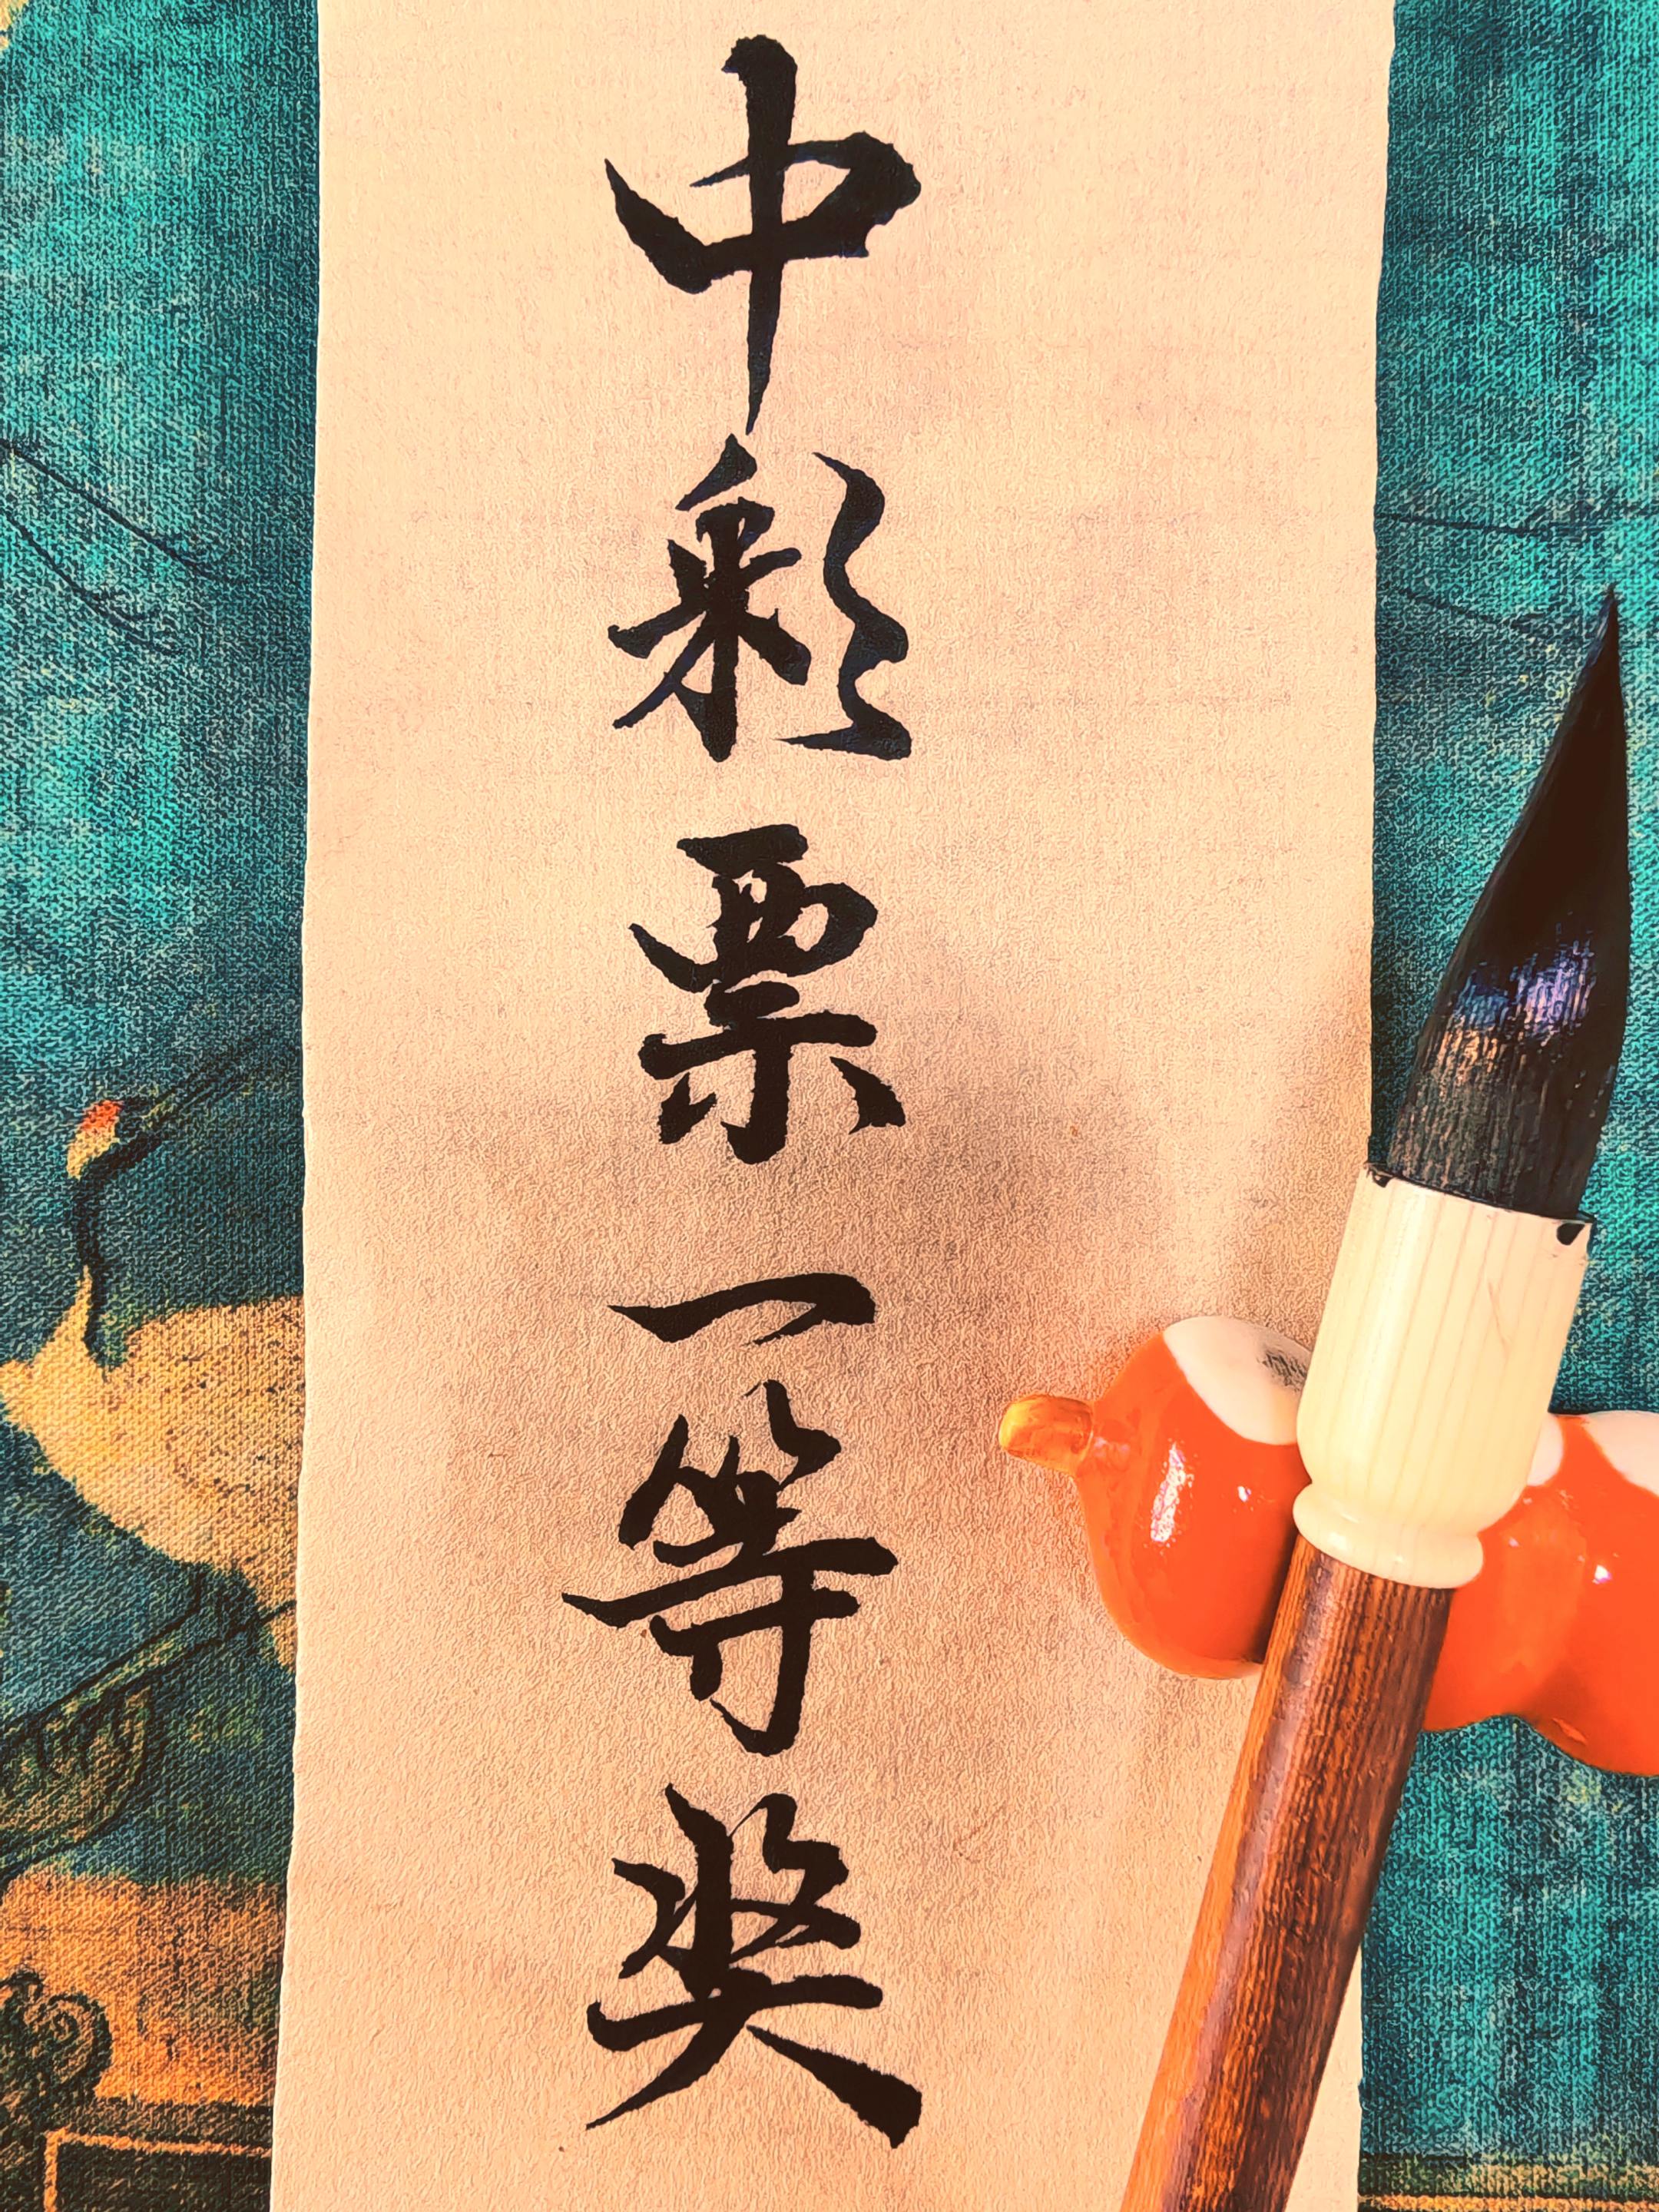 中彩票一等奖